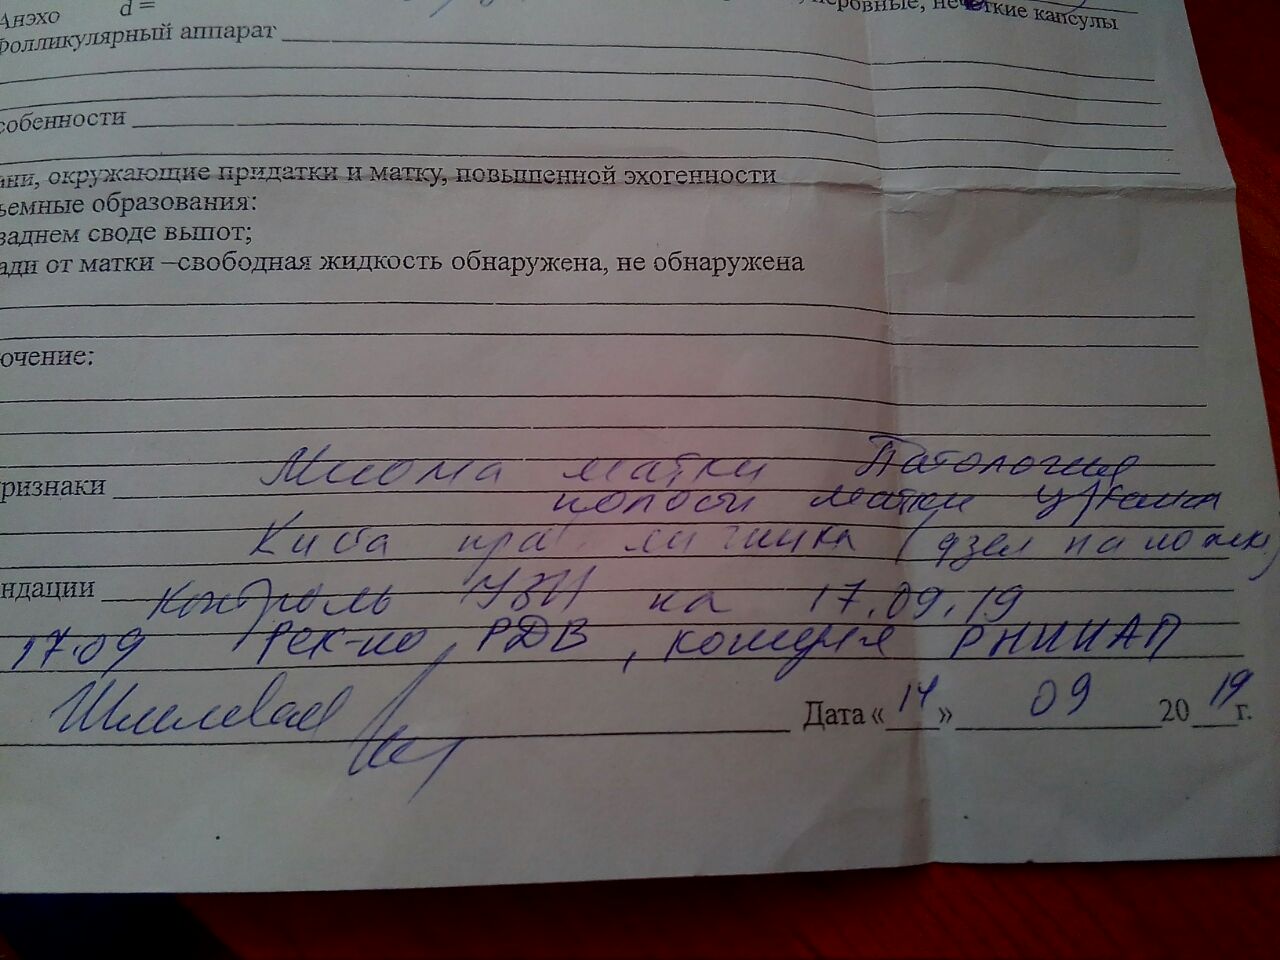 Анэхо d =
неровные, нечёткие капсулы
Фолликулярный аппарат
собенности
ани, окружающие придатки и матку, повышенной эхогенности
ъемные образования:
заднем своде выпот;
ади от матки –свободная жидкость обнаружена, не обнаружена
ючение:
ризнаки Миома матки Патология
полости матки
Киста пра яичника (узел на ножке)
ндации Контроль УЗИ на 17.09.19
17.09 Рек-но РДВ, РНИИАП
Дата «14» 09 2019 г.